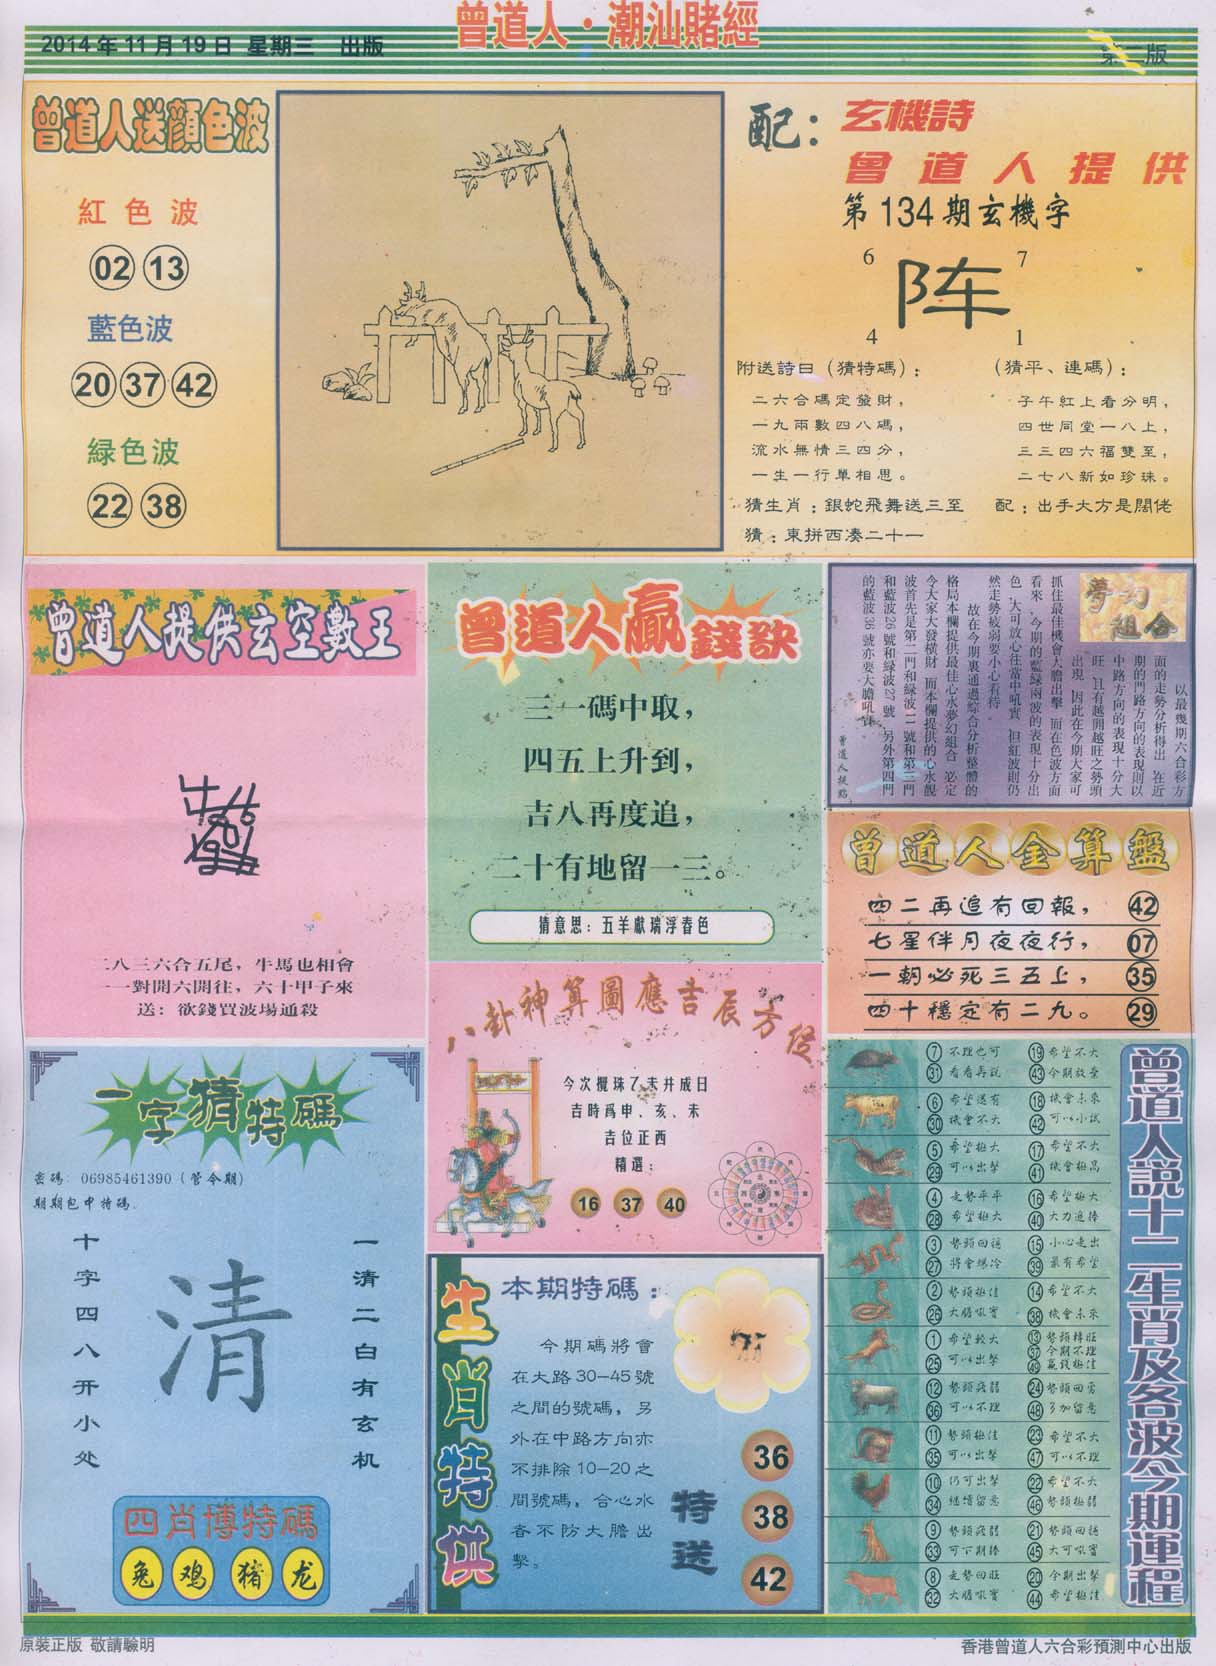 2014年11月19日 星期三 出版
曾道人·潮汕賭經
第二版
曾道人送顔色波
紅色波
02 13
藍色波
20 37 42
緑色波
22 38
配：
玄機詩
曾道人提供
第134期玄機字
6 7
阵
4 1
附送詩曰（猜特碼）：
二六合碼定發財，
一九兩數四八碼，
流水無情三四分，
一生一行單相思。
（猜平、連碼）：
子午紅上看分明，
四世同堂一八上，
三三四六福雙至，
二七八新如珍珠。
猜生肖：銀蛇飛舞送三至
配：出手大方是闊佬
猜：東拼西凑二十一
曾道人提供玄空數王
二八三六合五尾，牛馬也相會
一一對開六開往，六十甲子來
送：欲錢買波場通殺
曾道人贏錢訣
三一碼中取，
四五上升到，
吉八再度追，
二十有地留一三。
猜意思：五羊獻瑞浮春色
夢幻
組合
以最幾期六合彩方
面的走勢分析得出，在近
期的門路方向的表現則以
中路方向的表現十分大
旺，且有越開越旺之勢頭
出現，因此在今期大家可
抓住最佳機會大膽出擊，而在色波方面
看來，今期的藍緑兩波的表現十分出
色，大可放心在當中吼實，但紅波則仍
然走勢疲弱要小心看待。
故在今期裏通過綜合分析整體的
格局本欄提供最佳心水夢幻組合，必定
令大家大發横財，而本欄提供的心水靚
波首先是第二門和緑波11號和第三門
和藍波26號和緑波27號，另外第四門
的藍波36號亦要大膽吼實。
曾道人提點
曾道人金算盤
四二再追有回報， 42
七星伴月夜夜行， 07
一朝必死三五上， 35
四十穩定有二九。 29
八卦神算圖應吉辰方位
今次攪珠乙未井成日
吉時爲申、亥、未
吉位正西
精選：
16 37 40
一字猜特碼
密碼：06985461390（管令期）
期期包中特碼.
十字四八开小处
清
一清二白有玄机
四肖博特碼
兔 鸡 猪 龙
生肖特供
本期特碼：
今期碼將會
在大路30-45號
之間的號碼，另
外在中路方向亦
不排除10-20之
間號碼，合心水
者不防大膽出
擊。
特送
36
38
42
曾道人說十二生肖及各波今期運程
7 不理也可 19 希望不大
31 看看再説 43 今期放棄
6 希望送有 18 機會未來
30 機會不大 42 可以小試
5 希望極大 17 希望不大
29 可以出擊 41 機會極高
4 走勢平平 16 希望極大
28 希望極大 40 大力追捧
3 勢頭回穩 15 小心走出
27 將會爆冷 39 最有希望
2 勢頭極佳 14 希望不大
26 大膽吼實 38 機會未來
1 希望較大 13 勢頭轉旺
25 可以出擊 37 今期不理
49 贏錢極佳
12 勢頭疲弱 24 勢頭回勇
36 可以不理 48 多加留意
11 勢頭極佳 23 希望不大
35 可以出擊 47 可以不理
10 仍可出擊 22 希望不大
34 繼續留意 46 勢頭極弱
9 勢頭疲弱 21 勢頭回穩
33 可下期捧 45 大可吼實
8 走勢回旺 20 今期出擊
32 大膽吼實 44 希望極佳
原裝正版 敬請驗明
香港曾道人六合彩預測中心出版